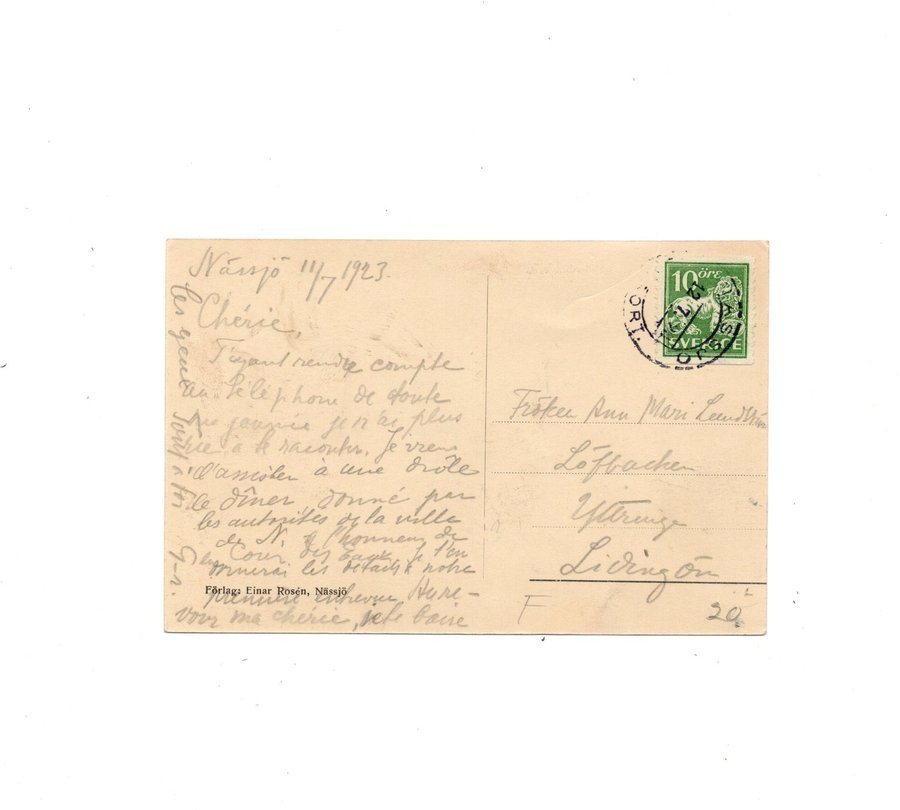 Nässjö 11/7 1923.
Chérie,
T'ayant rendre compte
au téléphone de toute
journée je n'ai plus
rien à te raconter. Je viens
d'assister à une drôle
de dîner donné par
les autorités de la ville
de N. à l'honneur de
Cour des Je t'en
donnerai les détails à notre
première entrevue. Aure-
voir ma chérie, je te baise
les yeux. Tout à toi
G-r.
Förlag: Einar Rosén, Nässjö
10 öre
SVERIGE
NÄSSJÖ
12.7.
ORT.
Fröken Ann Mari
Löfbacken
Yttringe
Lidingön
F
20.